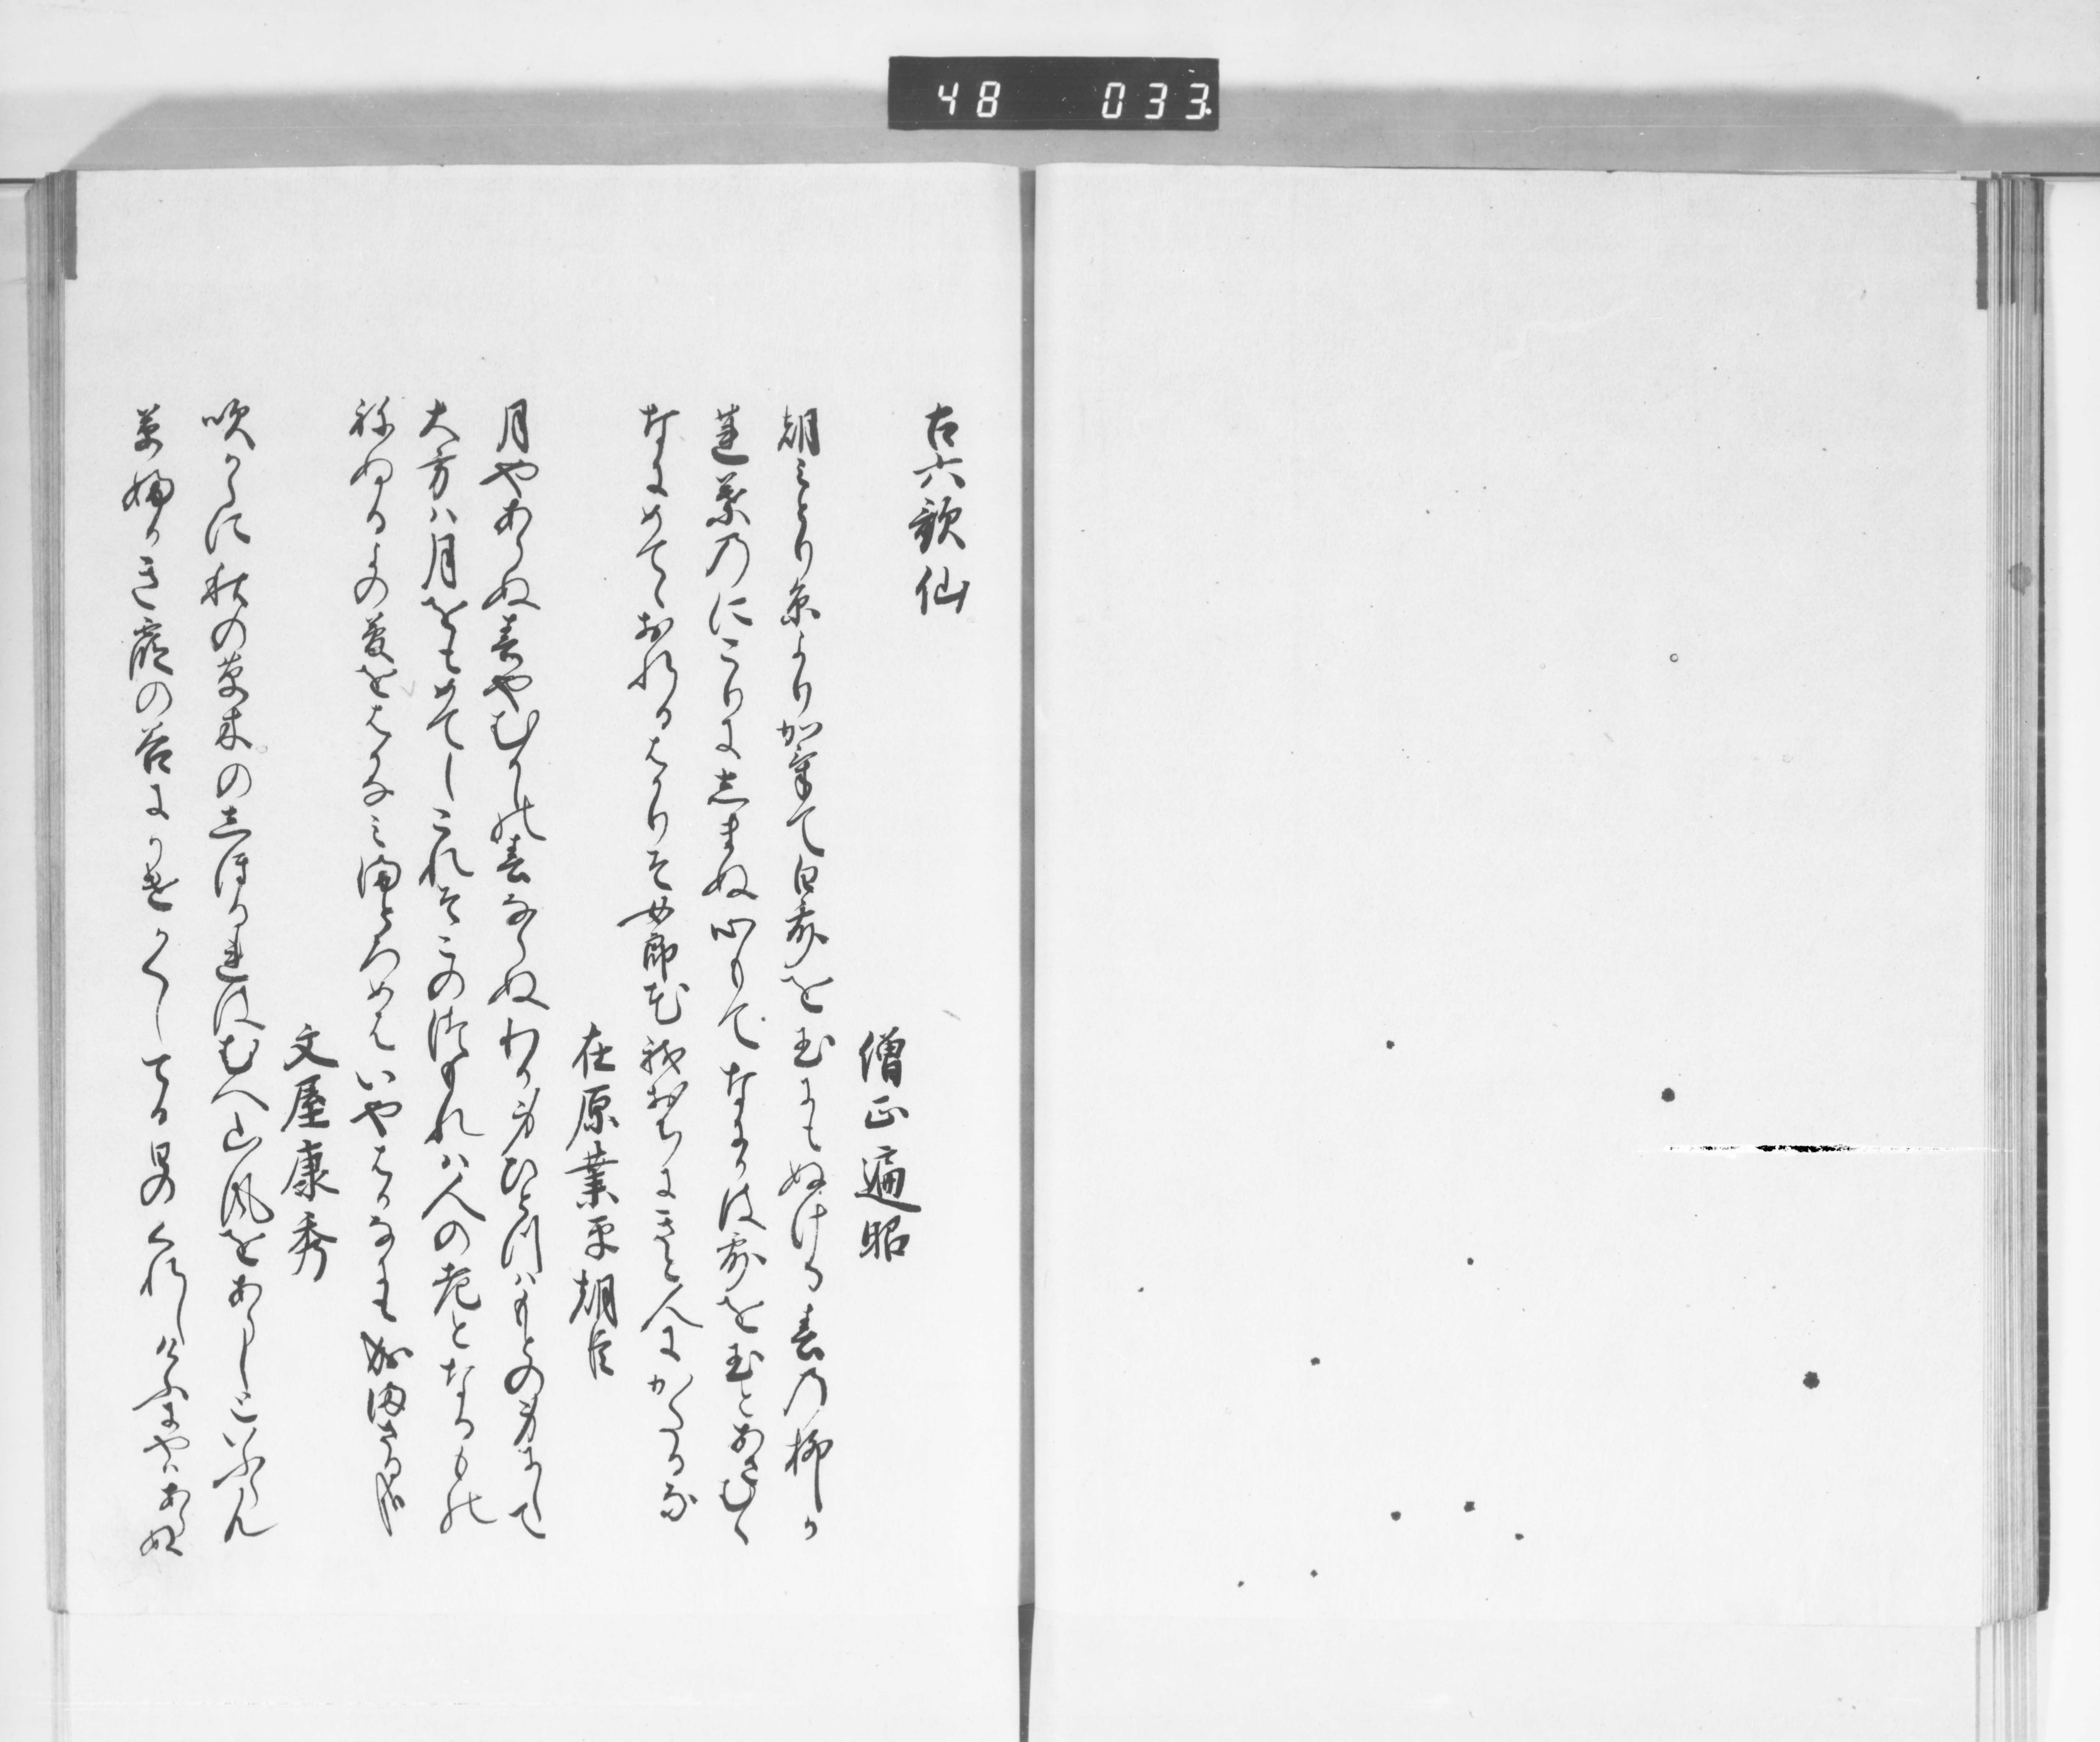 48 033
古六歌仙
僧正遍昭
朝みとり糸よりかけて白露を玉にもぬける春乃柳か
蓮葉乃にこりにしまぬ心もてなにかは露を玉とあさむく
なにめてゝおれるはかりそ女郎花我おちにきと人にかたるな
在原業平朝臣
月やあらぬ春やむかしの春ならぬわか身ひとつハもとの身にして
大方ハ月をもめてしこれそこのつもれハ人の老となるもの
ねぬるよの夢をはかなみまとろめはいやはかなにも成まさる哉
文屋康秀
吹からに秋の草木のしほるれはむへ山風をあらしといふらん
草ふかき霞の谷にかけかくしてる日のくれしけふにやハあらぬ